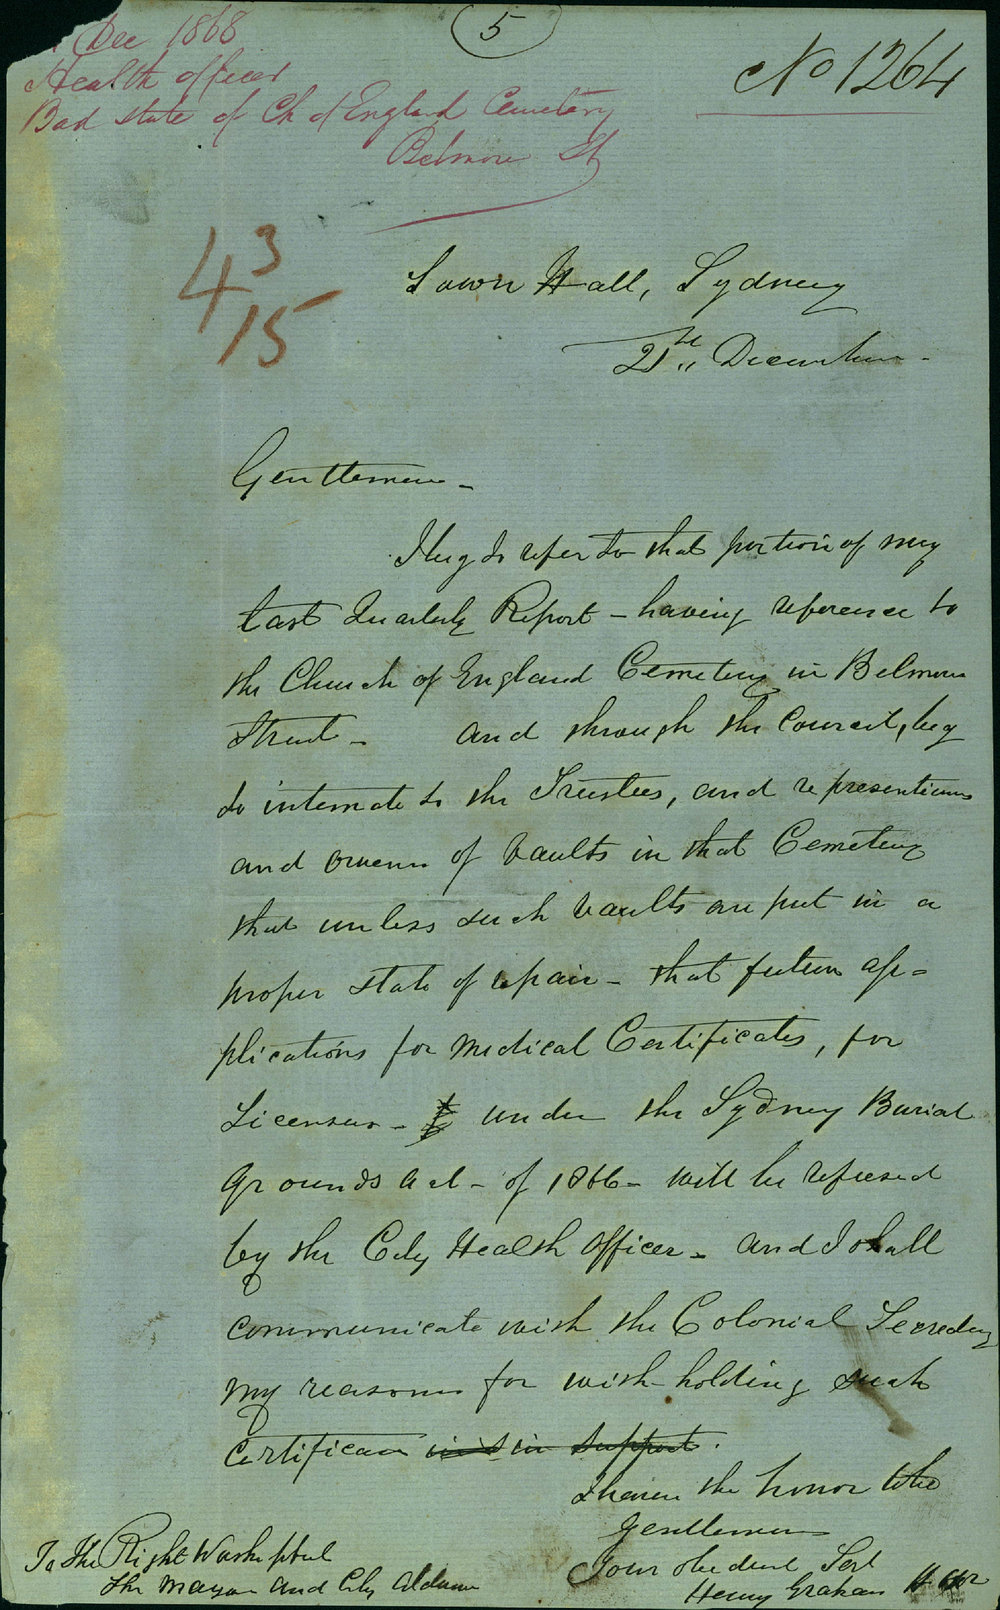 Dec 1868
Health officer
Bad state of Ch of England Cemetery
Belmore St
5
No 1264
4 3
15
Town Hall, Sydney
21st December
Gentlemen -
I beg to refer to that portion of my
last Quarterly Report - having reference to
the Church of England Cemetery in Belmore
Street - and through the Council, beg
to intimate to the Trustees, and representatives
and owners of Vaults in that Cemetery
that unless such Vaults are put in a
proper state of repair - that future ap=
plications for Medical Certificates, for
Licenses - under the Sydney Burial
Grounds Act - of 1866 - will be refused
by the City Health Officer - and I shall
communicate with the Colonial Secretary
my reasons for with-holding such
Certificate in support.
I have the honor to be
Gentlemen
Your obedient Sert
Henry Graham H.O.
To The Right Worshipful
the Mayor and City Aldermen